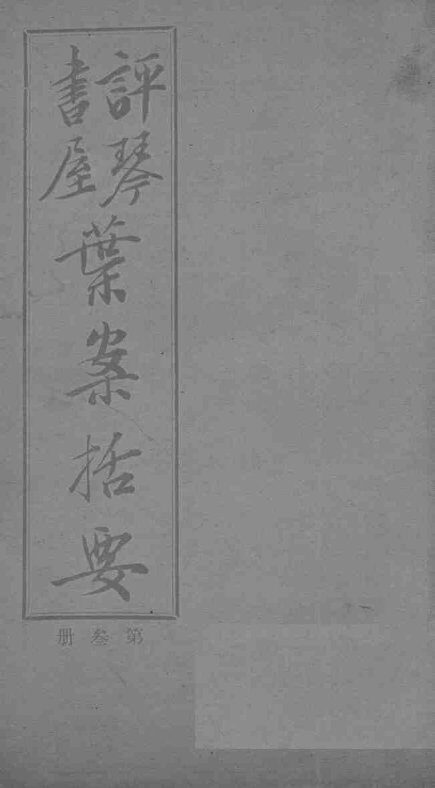 評琴書屋葉案括要
第叁册